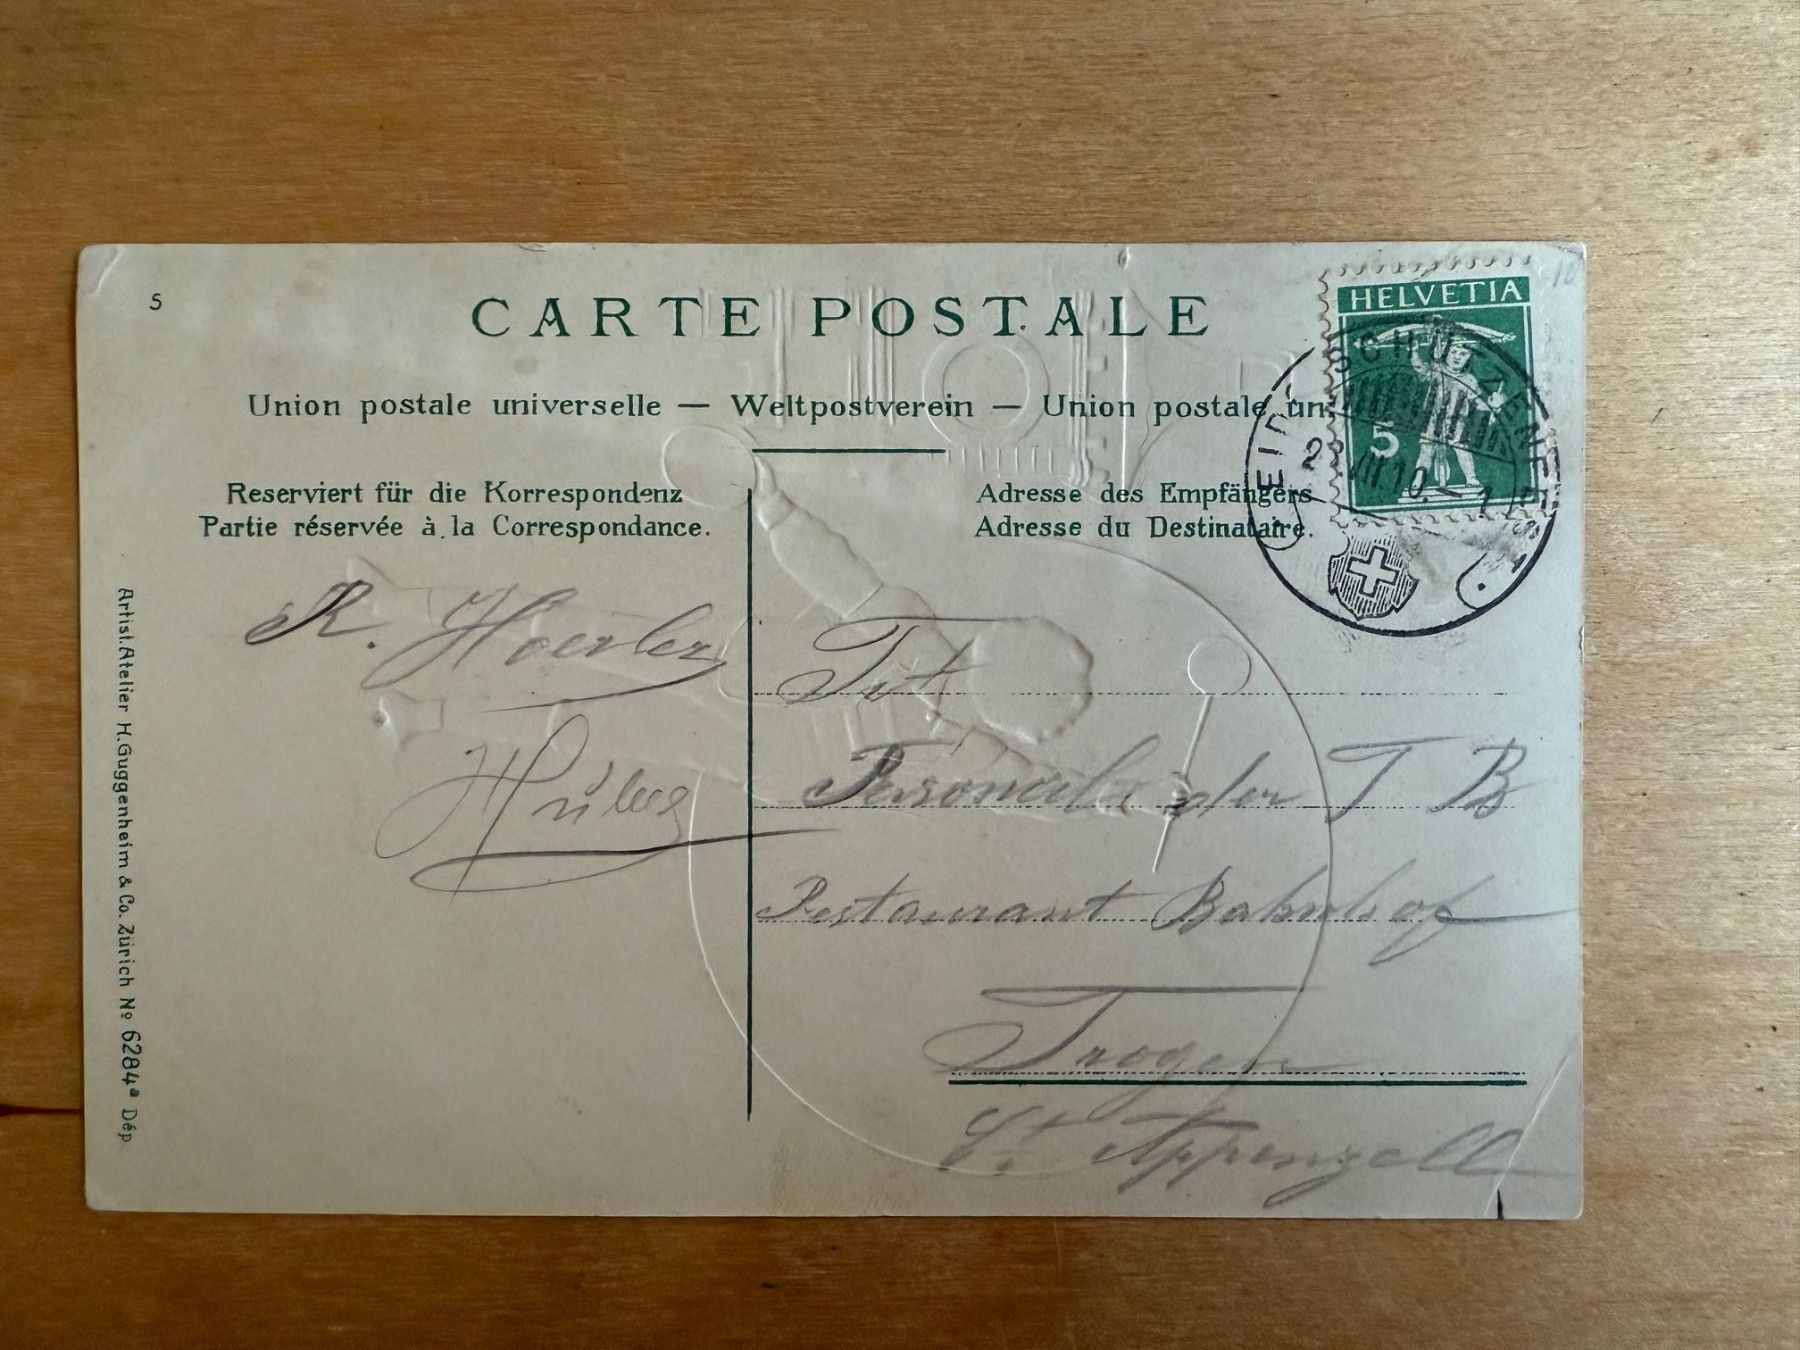 5
CARTE POSTALE
HELVETIA
5
Union postale universelle — Weltpostverein — Union postale un
EIDG. SCHÜTZENFEST
VII.10.-1
Reserviert für die Korrespondenz
Partie réservée à la Correspondance.
Adresse des Empfängers
Adresse du Destinataire.
R. Hoerler
Tit
Personal der T B
Restaurant Bahnhof
Trogen
Ct. Appenzell
Artist.Atelier H.Guggenheim & Co. Zürich No 6284a Dép.
10